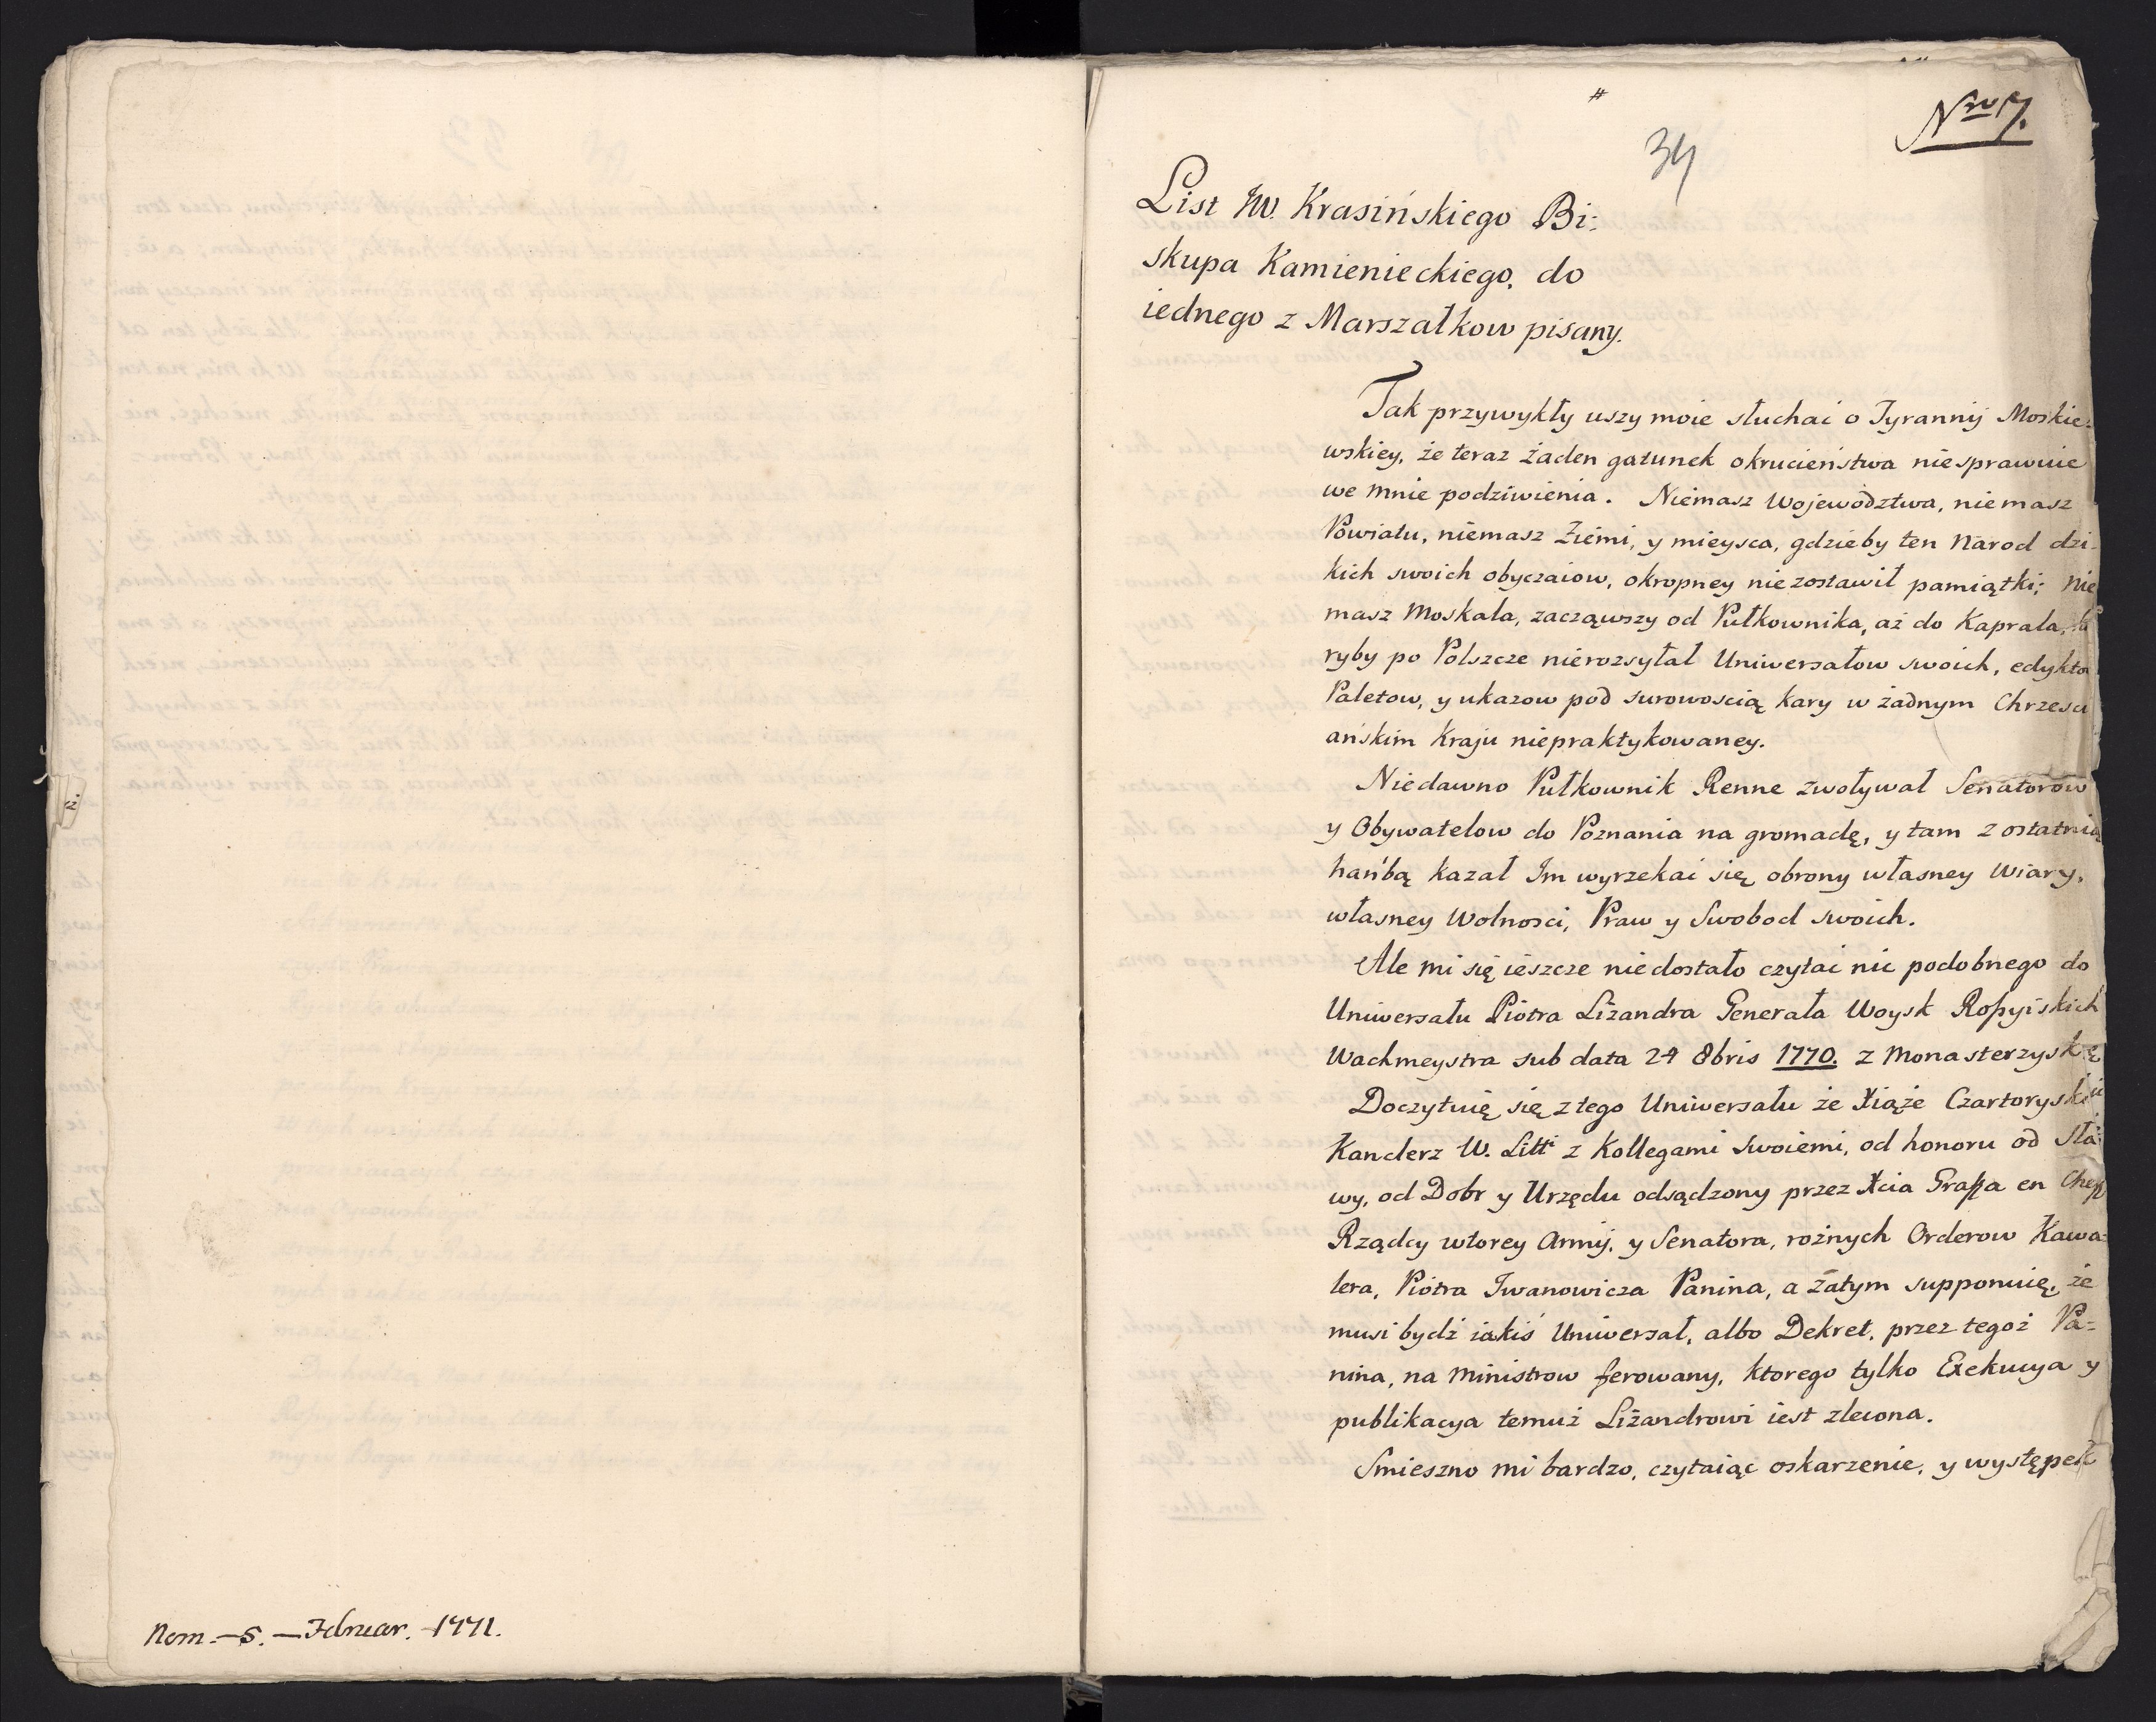 Nom. — 5. — Februar. 1771.
#
Nro 7.
34
List JW. Krasińskiego Bi:
skupa Kamienieckiego, do
iednego z Marszałkow pisany.
Tak przywykły uszy moie słuchać o Tyrannij Moskie:
wskiey, że teraz żaden gatunek okrucieństwa niesprawuie
we mnie podziwienia. Niemasz Wojewodztwa, niemasz
Powiatu, niemasz Ziemi, y mieysca, gdzieby ten Narod dzi:
kich swoich obyczaiow, okropney niezostawił pamiątki; Nie
masz Moskala, zacząwszy od Pułkownika, aż do Kaprala,
ryby po Polszcze nierozsyłał Uniwersałow swoich, edykto
Paletow, y ukazow pod surowością kary w żadnym Chrześci
ańskim Kraju niepraktykowaney.
Niedawno Pułkownik Renne zwoływał Senatorow
y Obywatelow do Poznania na gromadę, y tam z ostatnią
hańbą kazał Im wyrzekać się obrony własney Wiary,
własney Wolności, Praw y Swobod swoich.
Ale mi się ieszcze niedostało czytać nic podobnego do
Uniwersału Piotra Liżandra Generała Woysk Rossyiskich
Wachmeystra sub data 24 8bris 1770. z Monasterzysk
Doczytuię się z tego Uniwersału że Xiąże Czartoryski
Kanclerz W. Litti z Kollegami swoiemi, od honoru od Sła:
wy, od Dobr y Urzędu odsądzony przez Xcia Graffa en Cheff
Rządcy wtorey Armij, y Senatora, rożnych Orderow Kawa:
lera, Piotra Iwanowicza Panina, a zatym supponuię, że
musi bydź iakiś Uniwersał, albo Dekret, przez tegoż Pa=
nina, na Ministrow ferowany, ktorego tylko Exekucya y
publikacya temuż Liżandrowi iest zlecona.
Smieszno mi bardzo, czytaiąc oskarzenie, y występek